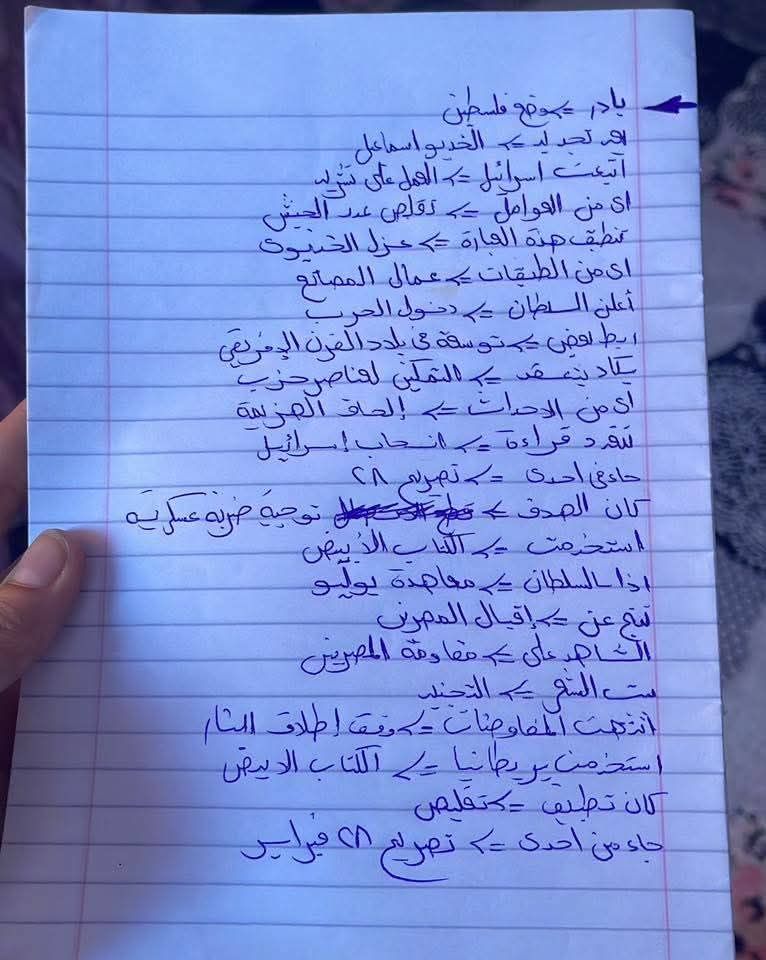 بادر => موقع فلسطين
بعد تجديد => الخديو اسماعيل
اتبعت اسرائيل => العمل على تشريد
اى من العوامل => تقلص عدد الجيش
تنطبق هذة العبارة => عزل الخديوى
اى من الطبقات => عمال المصانع
أعلن السلطان => دخول الحرب
ربط بعض => توسعة فى بلاد القرن الإفريقي
يكاد ينعقد => التمكين لعناصر حزب
اى من الاحداث => إلحاق الهزيمة
تنفرد قراءة => انسحاب إسرائيل
جاء فى احدى => تصريح ٢٨
كان الهدف => توجية ضربة عسكرية
استخدمت => الكتاب الأبيض
اذا السلطان => معاهدة يوليو
نتج عن => إقبال المصرين
الشاهد على => مقاومة المصريين
ست الشعر => التجنيد
انتهت المفاوضات => وقف إطلاق النار
استخدمت بريطانيا => الكتاب الابيض
كان تطبيق => تقليص
جاء من احدى => تصريح ٢٨ فبراير